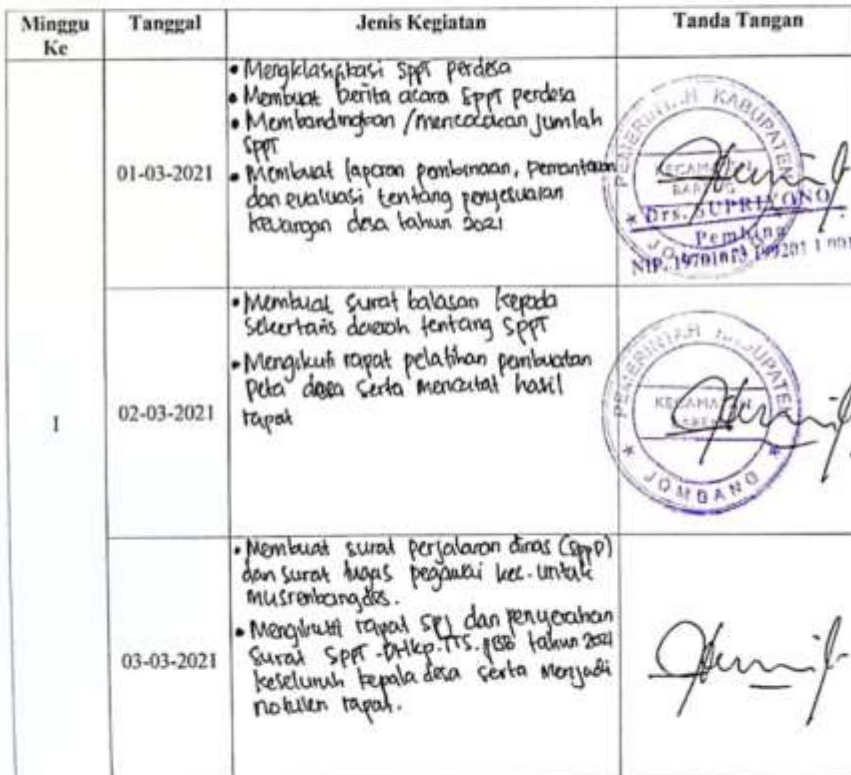 Minggu Ke
Tanggal
Jenis Kegiatan
Tanda Tangan
I
01-03-2021
• Mengklasifikasi SPPT perdesa
• Membuat berita acara SPPT perdesa
• Membandingkan / mencocokan jumlah
SPPT
• Membuat laporan pembinaan, pemantauan
dan evaluasi tentang penyesuaian
keuangan desa tahun 2021
PEMERINTAH KABUPATEN
KECAMATAN
JO
Drs. SUPRIYONO
Pembina
NIP.
02-03-2021
• Membuat surat balasan kepada
sekertaris daerah tentang SPPT
• Mengikuti rapat pelatihan pembuatan
peta desa serta mencatat hasil
rapat
PEMERINTAH KABUPATEN
KECAMATAN
JOMBANG
03-03-2021
• Membuat surat perjalanan dinas (SPPD)
dan surat tugas pegawai kec. untuk
musrenbangdes.
• Mengikuti rapat SPJ dan penyerahan
surat SPPT.DHKP.TTS.PBB tahun 2021
keseluruh kepala desa serta menjadi
notulen rapat.